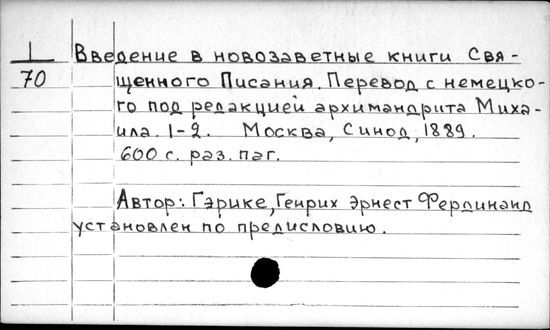 ⊥ Введение в новозаветные книги Свя-
70 щенного Писания. Перевод с немецко-
го под редакцией архимандрита Миха-
ила. 1-2. Москва, Синод, 1889.
600 с. раз. паг.
Автор: Гэрике, Генрих Эрнест Фердинанд
установлен по предисловию.